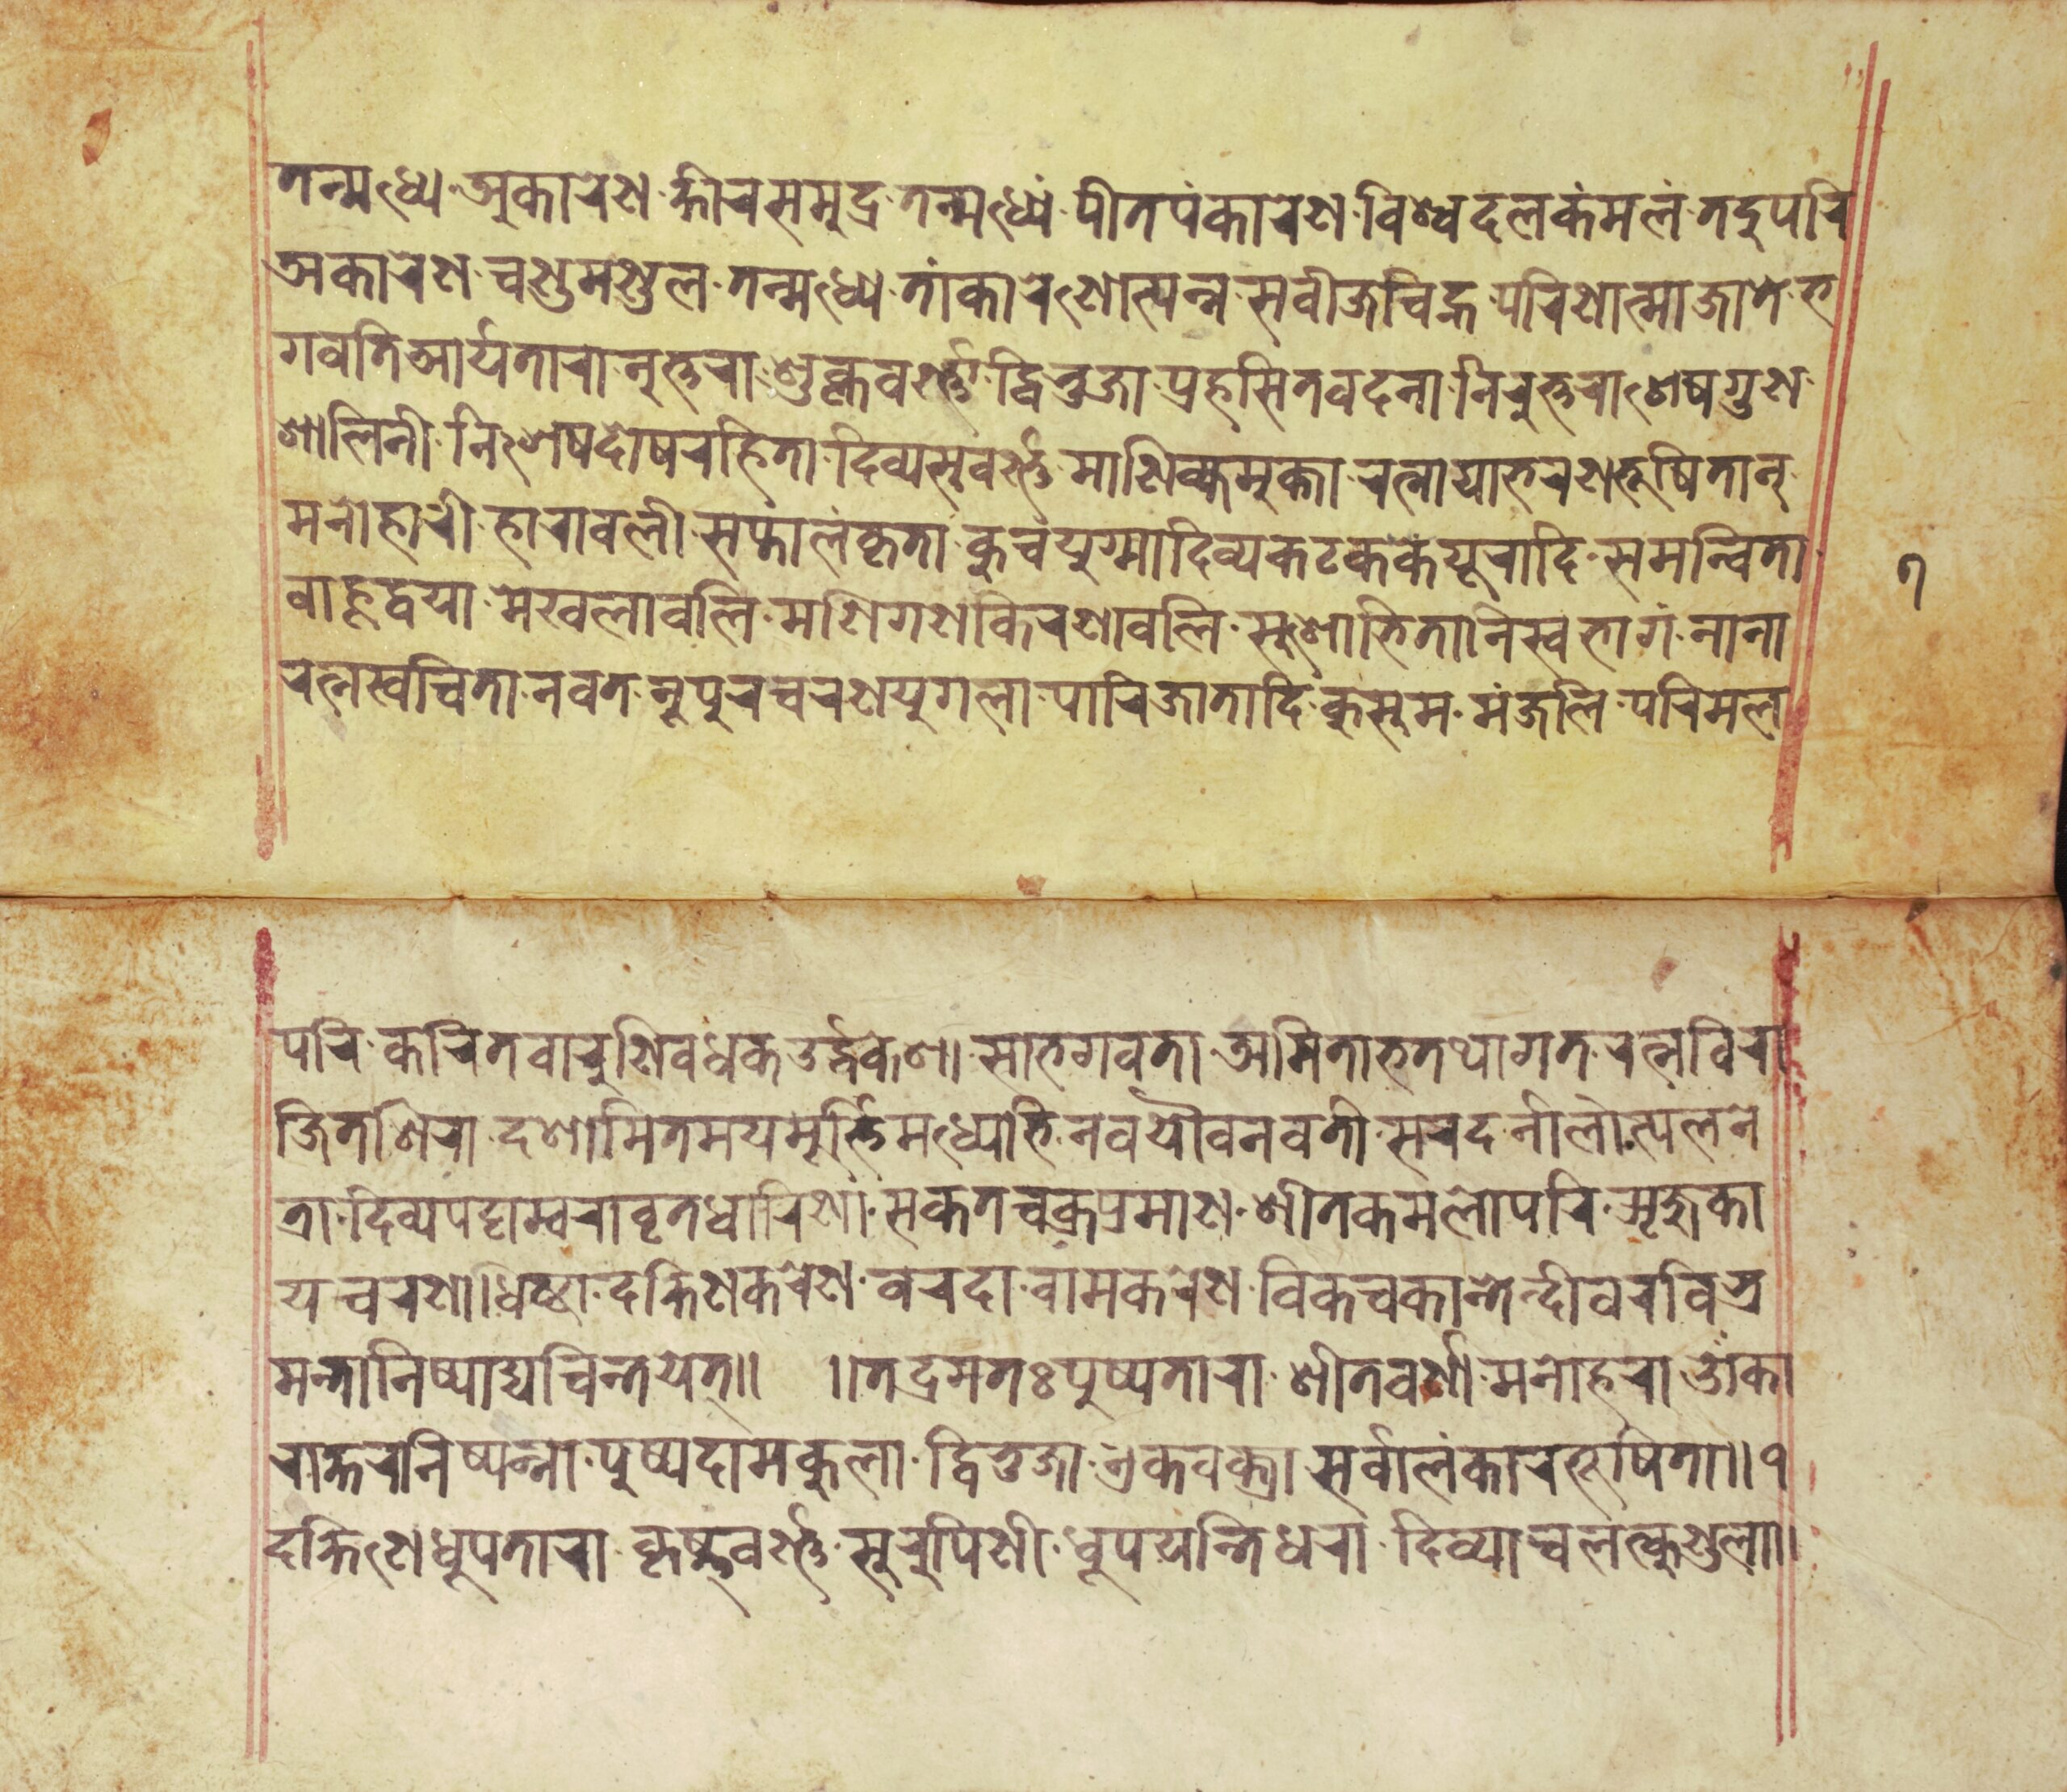 तन्मध्य अुकारेण क्षीरसमुद्र तन्मध्यं पीतपंकारेण विश्वदलकंमलं तदुपरि
अकारेण चण्डुमण्डुल तन्मध्य तांकारेणोत्पन्न सवीजचिह्न परिणात्माजाते भ
गवति आर्यतारा नुत्तरा शुक्लवर्ण्णा द्विभुजा प्रहसितवदना निरुत्तराशेषगुण
शालिनी निःशेषदोषरहिता दिव्यसुवर्ण्ण माणिक्यमुक्ता रत्नाद्याभरणभूषितान्
मनोहारी हारावली सप्तालंकृता कुचंयुग्मादिव्यकटककेयूरादि समन्विता
वाहूद्वया मेखलावलि मणिगणकिरणावलि सुशोभितानिस्वभागं नाना
रत्नखचिता नवत नूपुरचरणयुगला पारिजातादि कुसुम मंजलि परिमल
७
परि करितवारुणिवधक उर्द्धकेशा साभगवता अमिताभतथागत रत्नविरा
जितशिरा दशामितमयमूर्त्तिमध्याभिनवयौवनवती सरदर्नालोत्पलने
त्रा दिव्यपट्टाम्वरावृतधारिणां सकतचक्रप्रमाण शीतकमलोपरि ऋजुका
य चरणाधिष्ठा दक्षिणकरेण वरदा वामकरेण विकचकान्तेन्दीवरविभ्र
मन्तानिष्पाद्यचिन्तयेत्॥ ॥तद्रमतः पुष्पतारा शीतवर्णा मनोहरा ॐका
राक्षरनिष्पन्ना पुष्पदामकुला द्विभुजा एकवक्त्रा सर्वालंकारभूषिता॥१
दक्षिणे धूपतारा कृष्णवर्ण्ण सुरुपिणी धूपयन्तिधरा दिव्याचलत्कुण्डुला॥